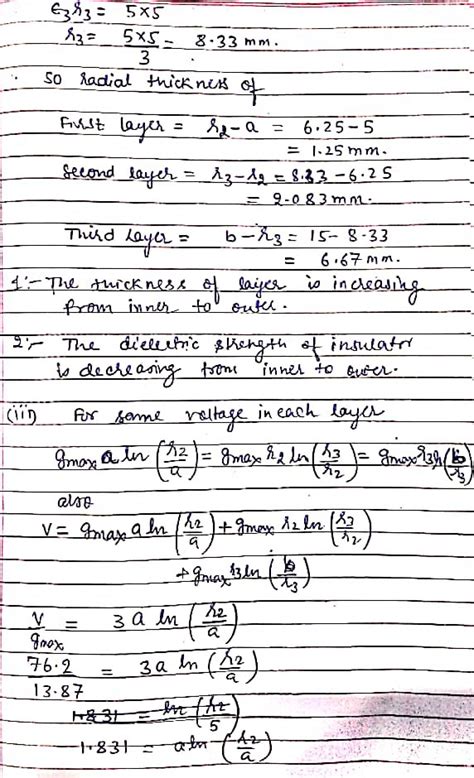 ϵ₃r₃ = 5×5
r₃ = 5×5/3 = 8.33 mm.
so radial thickness of
First layer = r₂-a = 6.25-5
= 1.25 mm.
Second layer = r₃-r₂ = 8.33-6.25
= 2.083 mm.
Third layer = b-r₃ = 15-8.33
= 6.67 mm.
1:- The thickness of layer is increasing
from inner to outer.
2:- The dielectric strength of insulator
is decreasing from inner to outer.
(iii) For same voltage in each layer
gmax a ln (r₂/a) = gmax r₂ ln (r₃/r₂) = gmax r₃ ln (b/r₃)
also
V = gmax a ln (r₂/a) + gmax r₂ ln (r₃/r₂)
+ gmax r₃ ln (b/r₃)
V/gmax = 3a ln (r₂/a)
76.2/13.87 = 3a ln (r₂/a)
1.831 = ln (r₂/5)
1.831 = a ln (r₂/a)